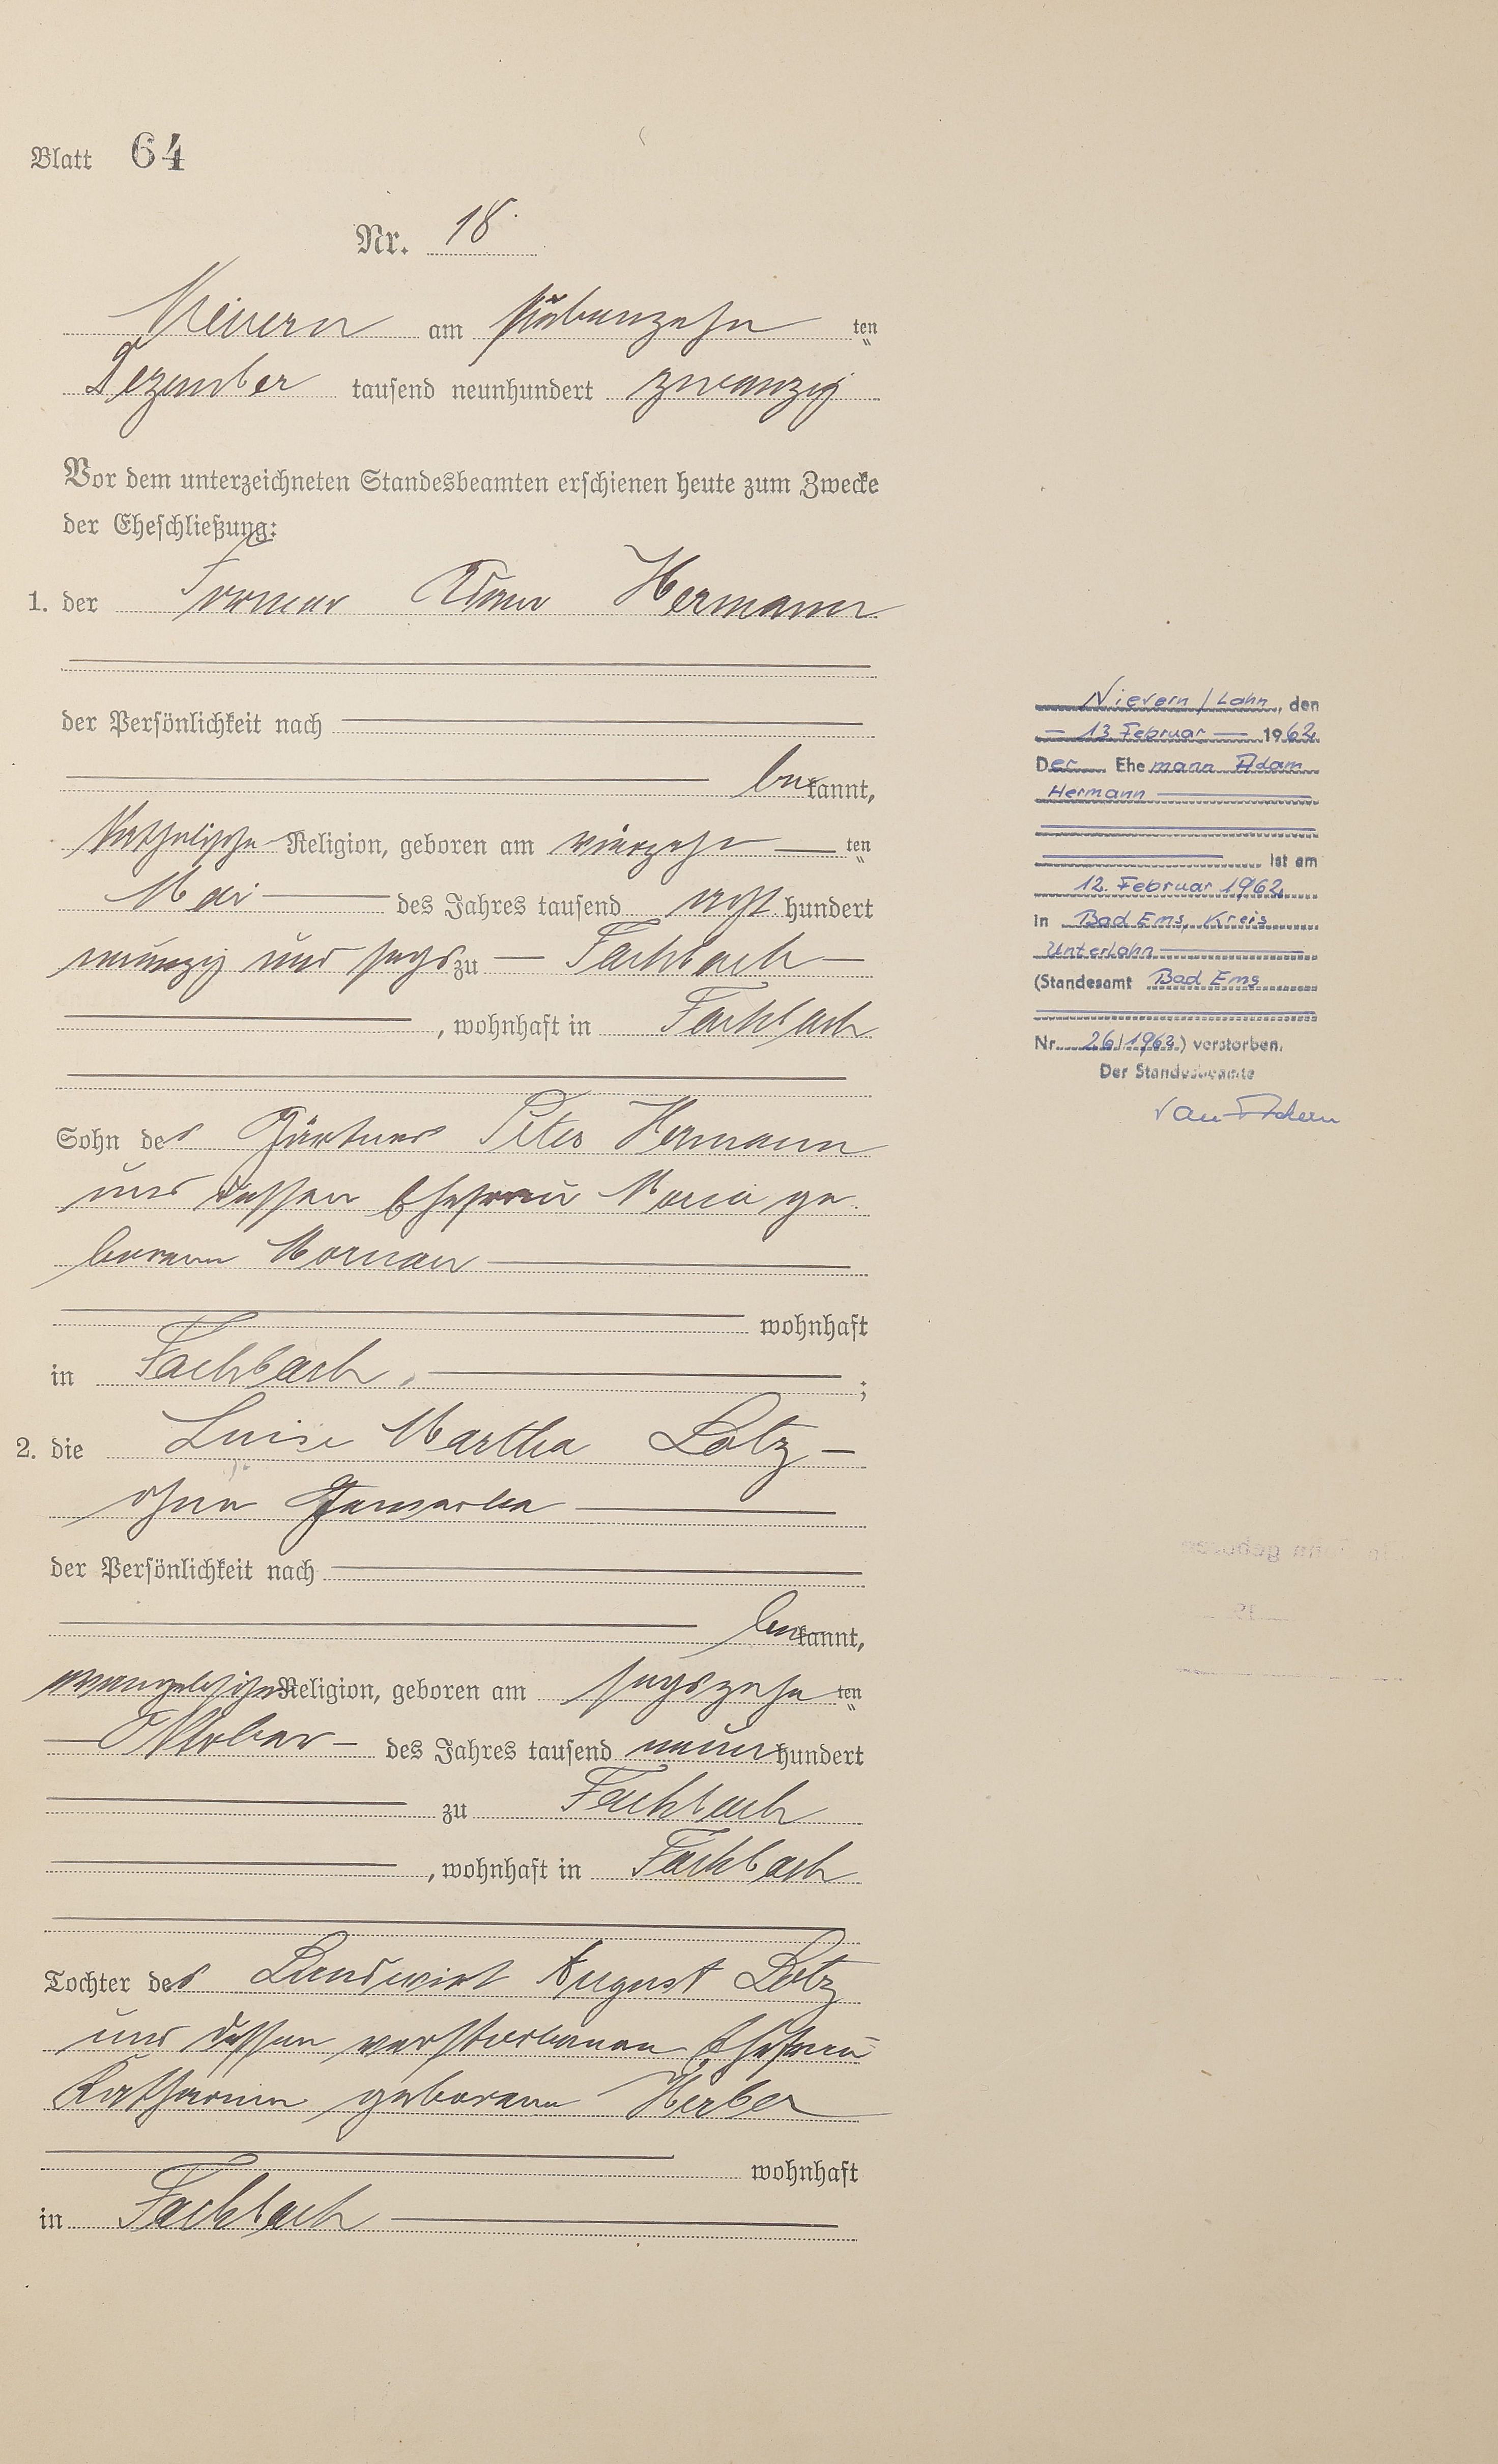 Blatt 64
Nr. 18
Nievern am siebenzehn ten
Dezember tausend neunhundert zwanzig
Vor dem unterzeichneten Standesbeamten erschienen heute zum Zwecke
der Eheschließung:
1. der Former Adam Hermann
der Persönlichkeit nach
bekannt,
katholische Religion, geboren am vierzehn ten
Mai des Jahres tausend acht hundert
neunzig und sechs zu Fachbach
, wohnhaft in Fachbach
Sohn des Gärtners Peter Hermann
und dessen Ehefrau Maria ge
borene
wohnhaft
in Fachbach ;
2. die Luise Martha Lotz
ohne Gewerbe
der Persönlichkeit nach
bekannt,
evangelische Religion, geboren am sechszehn ten
Oktober des Jahres tausend neun hundert
zu Fachbach
, wohnhaft in Fachbach
Tochter des Landwirt August Lotz
und dessen verstorbenen Ehefrau
Katharina geborene Herber
wohnhaft
in Fachbach
Nievern/Lahn, den
13. Februar 1962
Der Ehemann Adam
Hermann
ist am
12. Februar 1962
in Bad Ems, Kreis
Unterlahn
(Standesamt Bad Ems
Nr. 26/1962) verstorben.
Der Standesbeamte